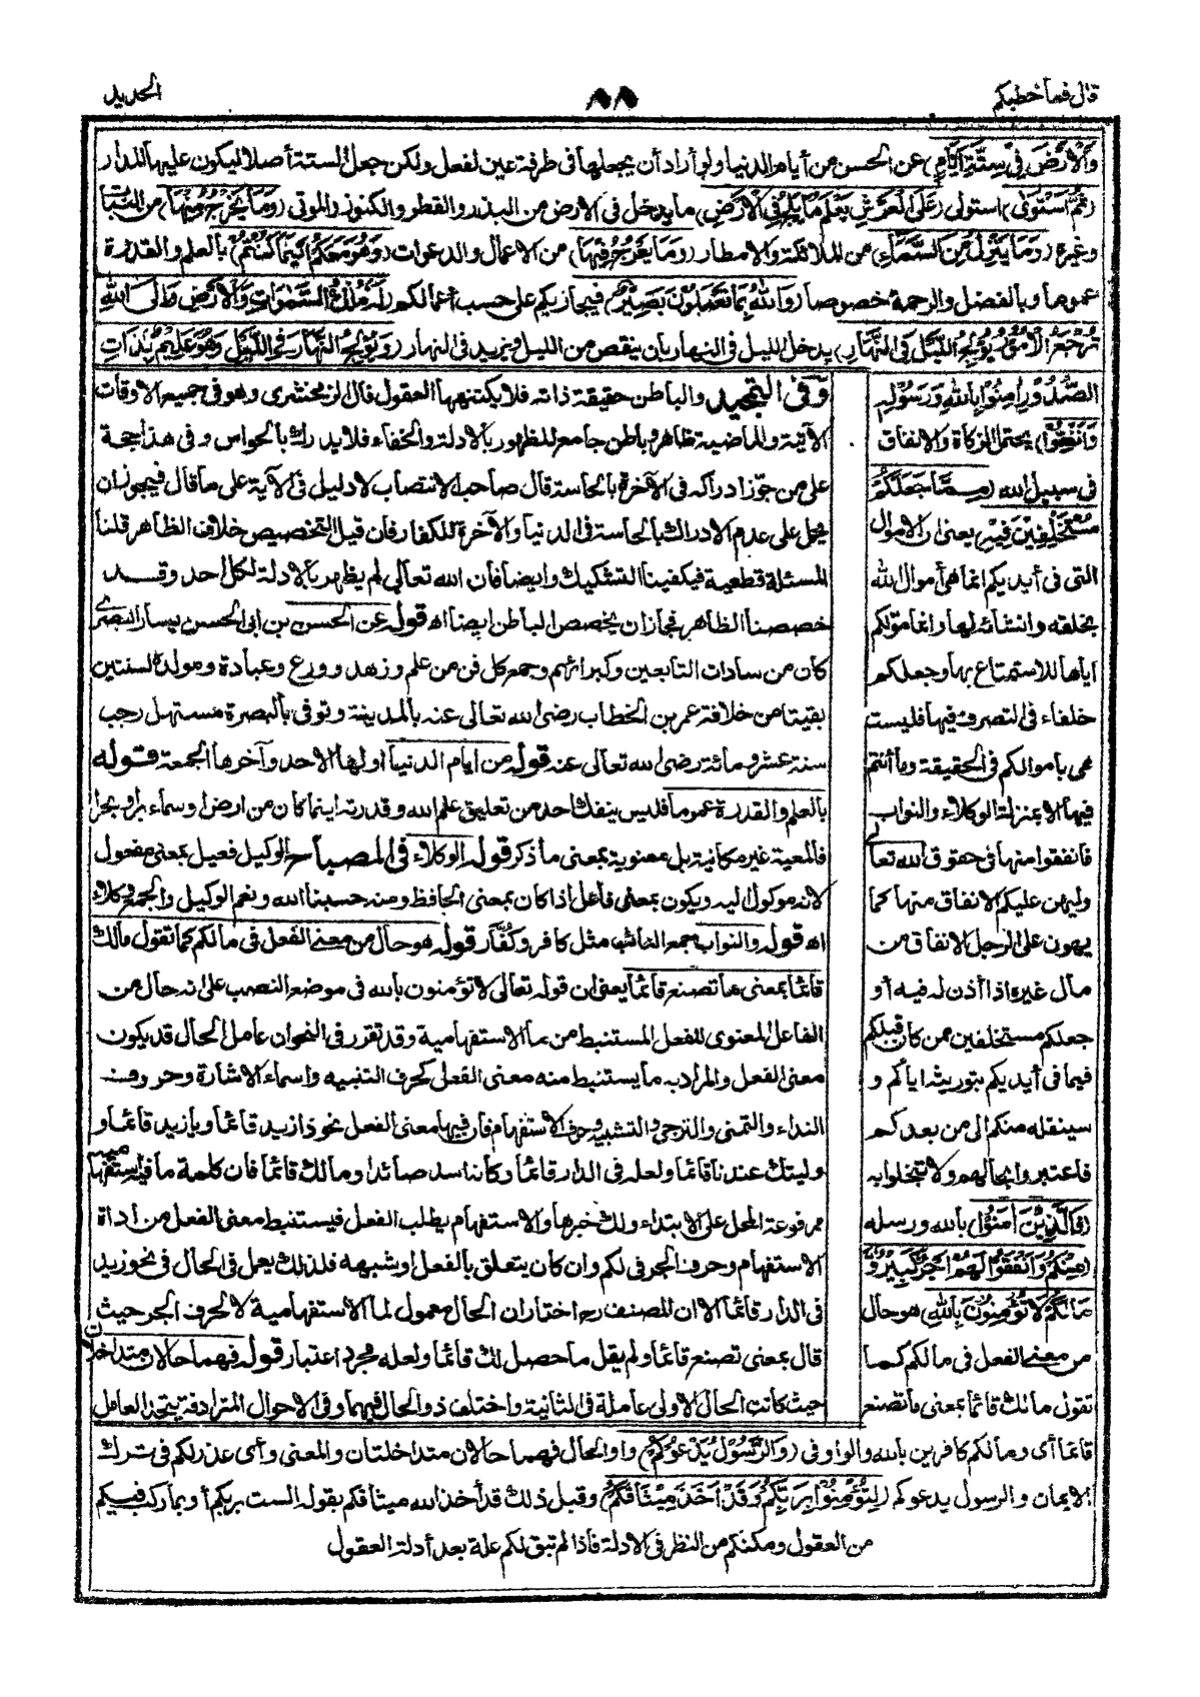 قال فما خطبكم
٨٨
الحديد
وَالْأَرْضَ فِي سِتَّةِ أَيَّامٍ) عن الحسن من أيام الدنيا ولو أراد أن يجعلها في طرفة عين لفعل ولكن جعل الستة أصلا ليكون عليها المدار
(ثُمَّ اسْتَوَى) استولى (عَلَى الْعَرْشِ يَعْلَمُ مَا يَلِجُ فِي الْأَرْضِ) ما يدخل في الارض من البذر والقطر والكنوز والموتى (وَمَا يَخْرُجُ مِنْهَا) من النبات
وغيره (وَمَا يَنْزِلُ مِنَ السَّمَاءِ) من الملائكة والامطار (وَمَا يَعْرُجُ فِيهَا) من الاعمال والدعوات (وَهُوَ مَعَكُمْ أَيْنَمَا كُنْتُمْ) بالعلم والقدرة
عموما وبالفضل والرحمة خصوصا (وَاللَّهُ بِمَا تَعْمَلُونَ بَصِيرٌ) فيجازيكم على حسب أعمالكم (لَهُ مُلْكُ السَّمَوَاتِ وَالْأَرْضِ وَإِلَى اللَّهِ
تُرْجَعُ الْأُمُورُ يُولِجُ اللَّيْلَ فِي النَّهَارِ) يدخل الليل في النهار بأن ينقص من الليل ويزيد في النهار (وَيُولِجُ النَّهَارَ فِي اللَّيْلِ وَهُوَ عَلِيمٌ بِذَاتِ
الصُّدُورِ آمِنُوا بِاللَّهِ وَرَسُولِهِ
وَأَنْفِقُوا) يحتمل الزكاة والانفاق
في سبيل الله (مِمَّا جَعَلَكُمْ
مُسْتَخْلَفِينَ فِيهِ) يعنى ان الاموال
التى في أيديكم انما هي أموال الله
بخلقه وانشائه لها وانما مولكم
اياها للاستمتاع بها وجعلكم
خلفاء في التصرف فيها فليست
هي بأموالكم في الحقيقة وما أنتم
فيها الا بمنزلة الوكلاء والنواب
فانفقوا منها في حقوق الله تعالى
وليهن عليكم الانفاق منها كما
يهون على الرجل الانفاق من
مال غيره اذا أذن له فيه أو
جعلكم مستخلفين ممن كان قبلكم
فيما في أيديكم بتوريثه اياكم و
سينقله منكم الى من بعدكم
فاعتبروا بحالهم ولا تبخلوا به
(فَالَّذِينَ آمَنُوا) بالله ورسله
(مِنْكُمْ وَأَنْفَقُوا لَهُمْ أَجْرٌ كَبِيرٌ وَ
مَا لَكُمْ لَا تُؤْمِنُونَ بِاللَّهِ) هو حال
من معنى الفعل في مالكم كما
تقول مالك قائما بمعنى ما تصنع
وفى التمجيد والباطن حقيقة ذاته فلا يكتنهها العقول قال الزمخشرى وهو في جميع الاوقات
الآتية والماضية ظاهر وباطن جامع للظهور بالادلة والخفاء فلا يدرك بالحواس وفى هذا حجة
على من جوز ادراكه في الآخرة بالحاسة قال صاحب الانتصاب لا دليل في الآية على ما قال فيجوز ان
يحمل على عدم الادراك بالحاسة في الدنيا والآخرة للكفار فان قيل التخصيص خلاف الظاهر قلنا
المسئلة قطعية فيكفينا التشكيك وايضا فان الله تعالى لم يظهر بالادلة لكل احد وقد
خصصنا الظاهر فجاز ان يخصص الباطن ايضا اه قوله عن الحسن بن ابى الحسن يسار البصرى
كان من سادات التابعين وكبرائهم وجمع كل فن من علم وزهد وورع وعبادة ومولده لسنتين
بقيتا من خلافة عمر بن الخطاب رضى الله تعالى عنه بالمدينة وتوفى بالبصرة مستهل رجب
سنة عشر ومائة رضى الله تعالى عنه قوله من ايام الدنيا اولها الاحد وآخرها الجمعة قوله
بالعلم والقدرة عموما فليس ينفك احد من تعليق علم الله وقدرته اينما كان من ارض او سماء بر او بحر
فالمعية غير مكانية بل معنوية بمعنى ما ذكر قوله الوكلاء في المصباح الوكيل فعيل بمعنى مفعول
لانه موكول اليه ويكون بمعنى فاعل اذا كان بمعنى الحافظ ومنه حسبنا الله ونعم الوكيل والجمع وكلاء
اه قوله والنواب جمع النائب مثل كافر وكفار قوله هو حال من معنى الفعل في مالكم كما تقول مالك
قائما بمعنى ما تصنع قائما يعنى ان قوله تعالى لا تؤمنون بالله في موضع النصب على انه حال من
الفاعل المعنوى للفعل المستنبط من ما الاستفهامية وقد تقرر في النحو ان عامل الحال قد يكون
معنى الفعل والمراد به ما يستنبط منه معنى الفعل كحرف التنبيه واسماء الاشارة وحروف
النداء والتمنى والترجى والتشبيه وحرف الاستفهام فان فيها معنى الفعل نحو ذا زيد قائما ويا زيد قائما و
وليتك عندنا قائما ولعله في الدار قائما وكأنه اسد صائدا ومالك قائما فان كلمة ما فيه استفهامية
مرفوعة المحل على الابتداء ولك خبرها والاستفهام يطلب الفعل فيستنبط معنى الفعل من اداة
الاستفهام وحرف الجر في لكم وان كان يتعلق بالفعل او شبهه فلذلك يعمل في الحال في نحو زيد
في الدار قائما الا ان المصنف رح اختار ان الحال معمول لما الاستفهامية لا لحرف الجر حيث
قال بمعنى تصنع قائما ولم يقل ما حصل لك قائما ولعله مجرد اعتبار قوله فهما حالان متداخلان
حيث كانت الحال الاولى عاملة في الثانية واختلف ذو الحال فيهما وفى الاحوال المترادفة يتحد العامل
قائما أى ومالكم كافرين بالله والواو في (وَالرَّسُولُ يَدْعُوكُمْ) واو الحال فهما حالان متداخلتان والمعنى وأى عذر لكم في ترك
الايمان والرسول يدعوكم (لِتُؤْمِنُوا بِرَبِّكُمْ وَقَدْ أَخَذَ مِيثَاقَكُمْ) وقبل ذلك قد أخذ الله ميثاقكم بقوله الست بربكم أو بما ركب فيكم
من العقول ومكنكم من النظر في الادلة فاذا لم تبق لكم علة بعد أدلة العقول